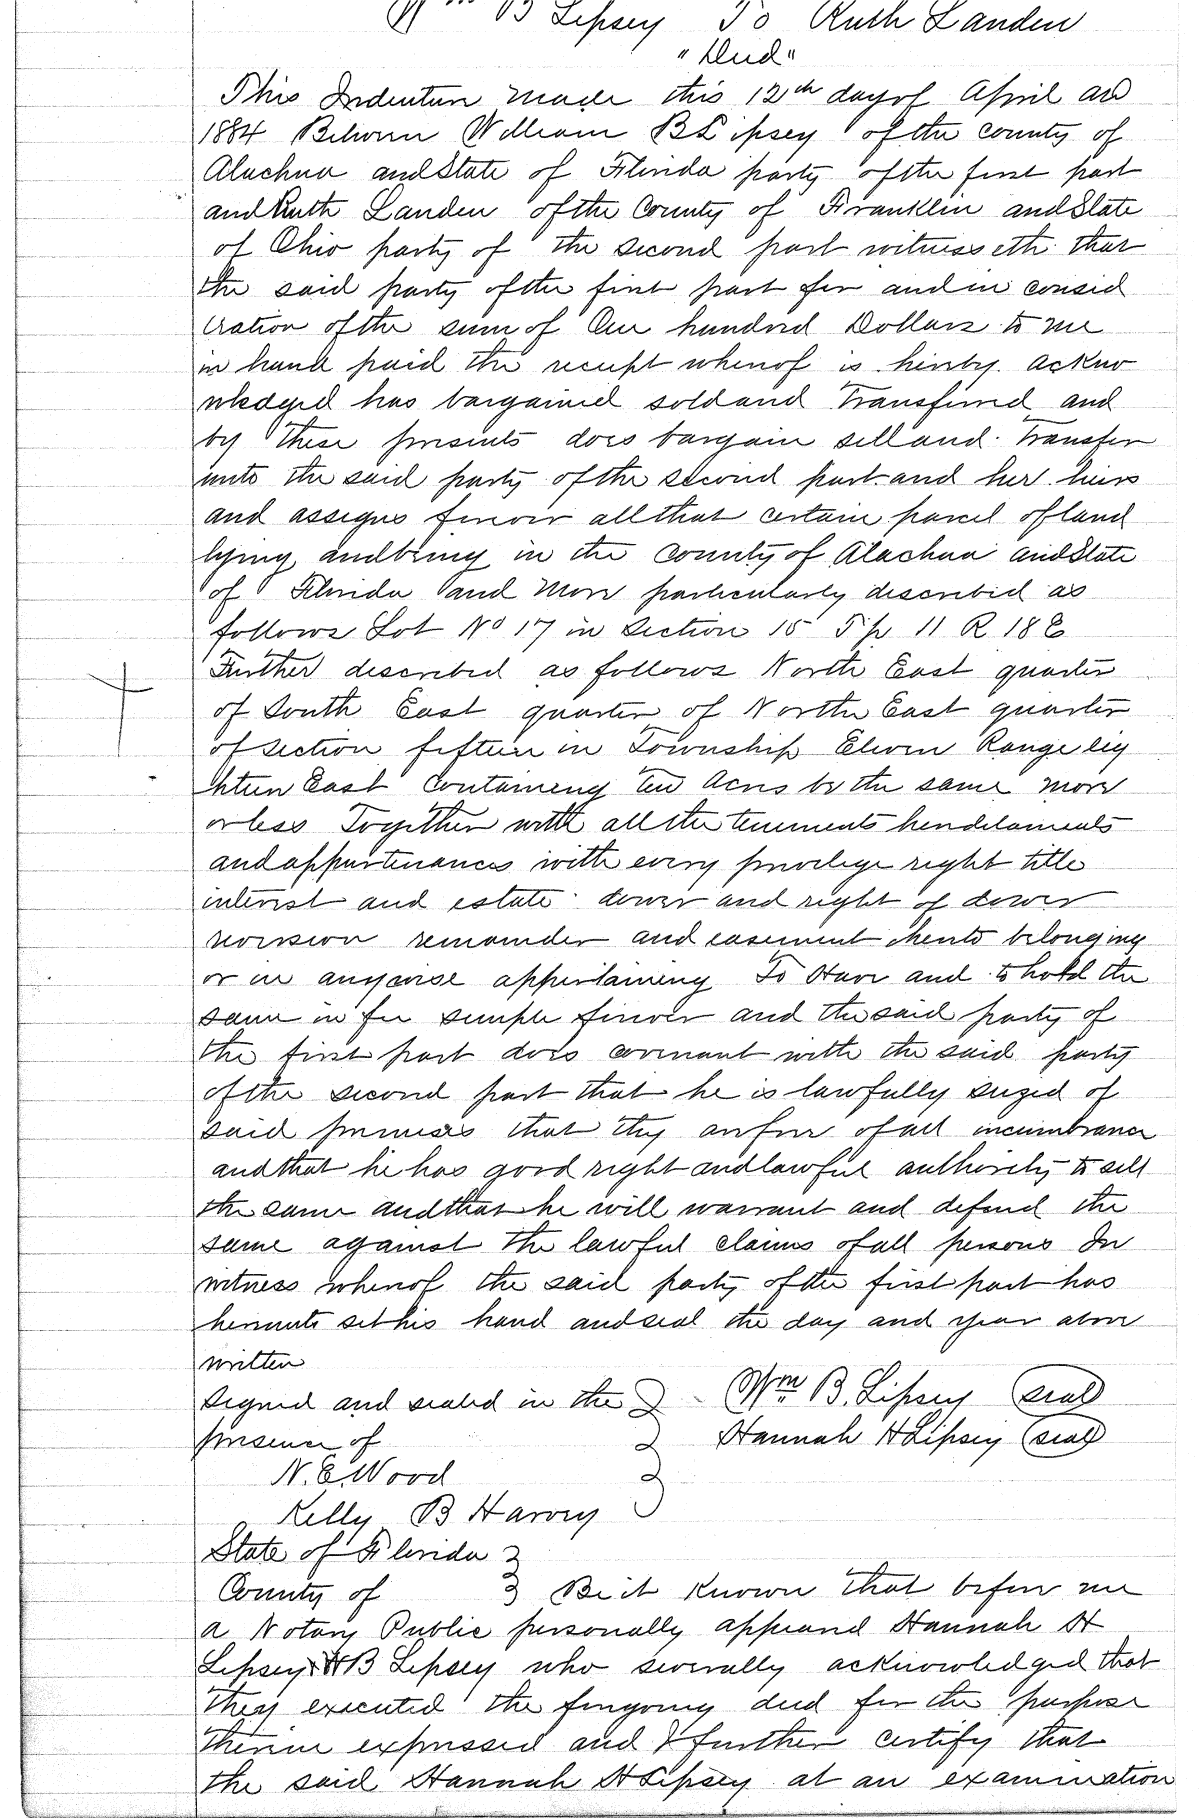 Wm B Lipsey To Ruth Landen
"Deed"
This Indenture made this 12th day of April AD
1884 Between William B Lipsey of the county of
Alachua and State of Florida party of the first part
and Ruth Landen of the County of Franklin and State
of Ohio party of the second part witnesseth that
the said party of the first part for and in consid
eration of the sum of One hundred Dollars to me
in hand paid the receipt whereof is hereby ackno
wledged has bargained sold and Transferred and
by these presents does bargain sell and Transfer
unto the said party of the second part and her heirs
and assigns forever all that certain parcel of land
lying and being in the County of Alachua and State
of Florida and More particularly described as
follows Lot No 17 in Section 15 Tp 11 R 18 E
Further described as follows North East quarter
of South East quarter of North East quarter
of section fifteen in Township Eleven Range eig
hteen East Containing ten Acres be the same more
or less Together with all the tenements hereditaments
and appurtenances with every privilege right title
interest and estate dower and right of dower
reversion remainder and easement thereto belonging
or in anywise appertaining To Have and to hold the
same in fee simple forever and the said party of
the first part does covenant with the said party
of the second part that he is lawfully seized of
said premises that they are free of all incumbrance
and that he has good right and lawful authority to sell
the same and that he will warrant and defend the
same against the lawful claims of all persons In
witness whereof the said party of the first part has
hereunto set his hand and seal the day and year above
written
Signed and sealed in the Wm B. Lipsey (seal)
presence of Hannah H Lipsey (seal)
N. E. Wood
Kelly B Harvey
State of Florida
County of Be it Known that before me
a Notary Public personally appeared Hannah H
Lipsey & W B Lipsey who severally acknowledged that
they executed the foregoing deed for the purpose
therein expressed and I further certify that
the said Hannah H Lipsey at an examination